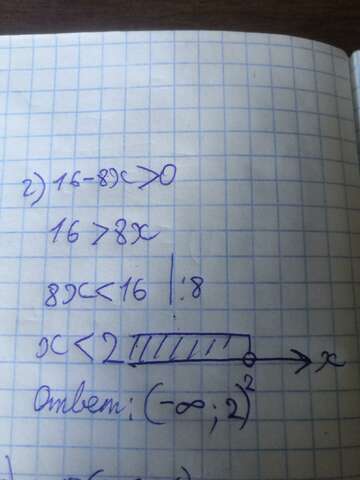 г) 16-8x>0
16 >8x
8x<16 |:8
x<2
2 x
Ответ: (-∞; 2)